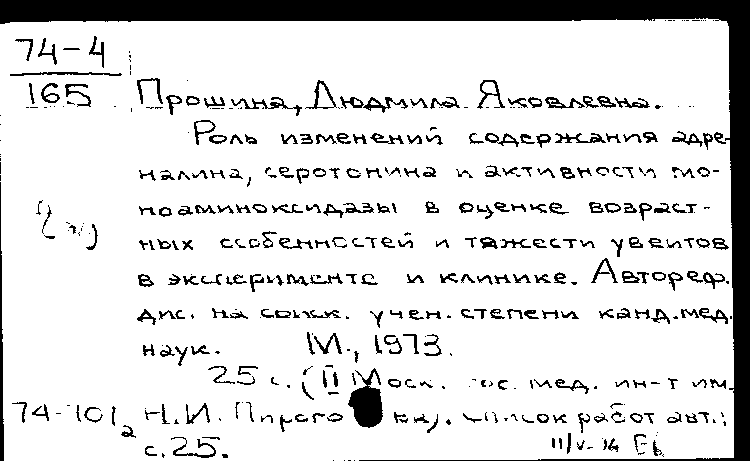 74-4
165
Прошина, Людмила Яковлевна.
Роль изменений содержания адре-
налина, серотонина и активности мо-
ноаминоксидазы в оценке возраст-
ных особенностей и тяжести увеитов
в эксперименте и клинике. Автореф.
дис. на соиск. учен. степени канд. мед.
наук. М., 1973.
25 с. (II Моск. гос. мед. ин-т им.
74-101 Н.И. Пирого Список работ авт.:
с. 25.